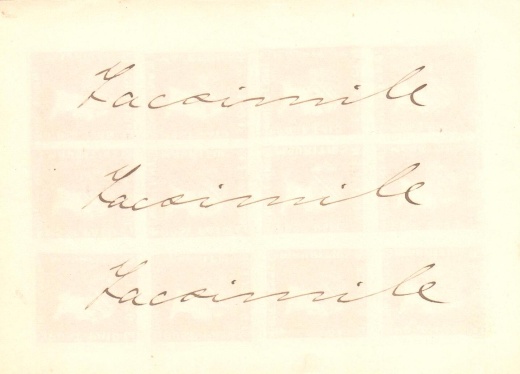 Facsimile
Facsimile
Facsimile